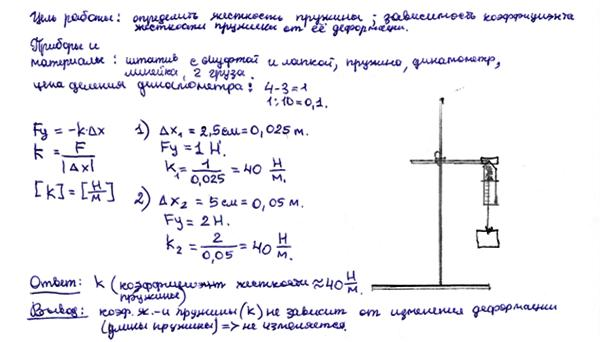 Цель работы: определить жесткость пружины; зависимость коэффициента
жесткости пружины от её деформации.
Приборы и
материалы: штатив с муфтой и лапкой, пружина, динамометр,
линейка, 2 груза.
цена деления динамометра: 4-3=1
1:10=0,1.
Fy = -k·Δx
k = F/|Δx|
[k] = [Н/м]
1) Δx₁ = 2,5см = 0,025 м.
Fy = 1 Н.
k₁ = 1/0,025 = 40 Н/м.
2) Δx₂ = 5см = 0,05 м.
Fy = 2Н.
k₂ = 2/0,05 = 40 Н/м.
Ответ: k (коэффициент жесткости ≈ 40 Н/м.
пружины)
Вывод: коэф. ж.-и пружины (k) не зависит от изменения деформации
(длины пружины) => не изменяется.